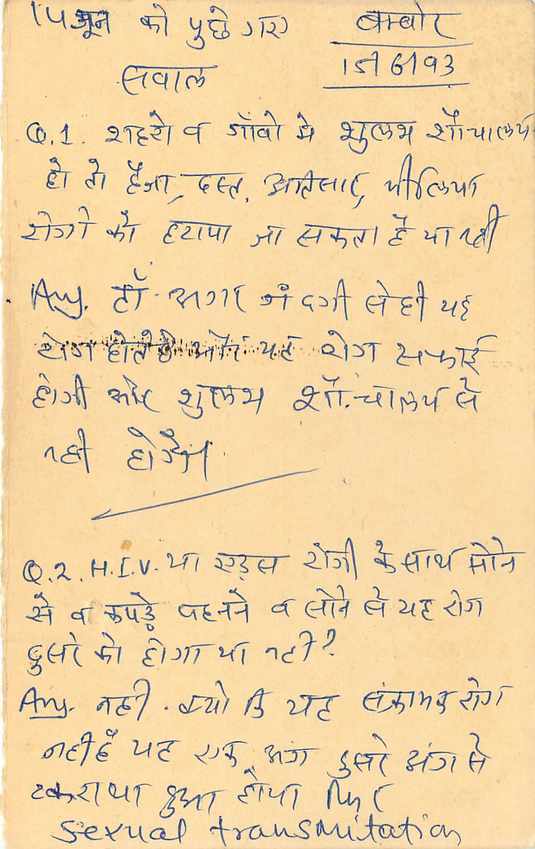 14 जून को पुछे गए बाम्बोर
सवाल 15/6/93
Q.1. शहरो व गॉवो मे शुलभ शौचालय
हो तो हैजा, दस्त, अतिसार, पीलिया
रोगो को हटाया जा सकता है या नही
Ans. हाँ. अगर गंदगी से ही यह
रोग होते है और यह रोग सफाई
होगी और शुलभ शौचालय से
नही होगें।
Q.2. H.I.V. या एड्स रोगी के साथ सोने
से व कपड़े पहनने व सोने से यह रोग
दुसरे को होगा या नही?
Ans. नही. क्यो कि यह संक्रामक रोग
नही है यह एक अंग दुसरे अंग से
टकराया हुआ होया फिर
Sexual transmitation